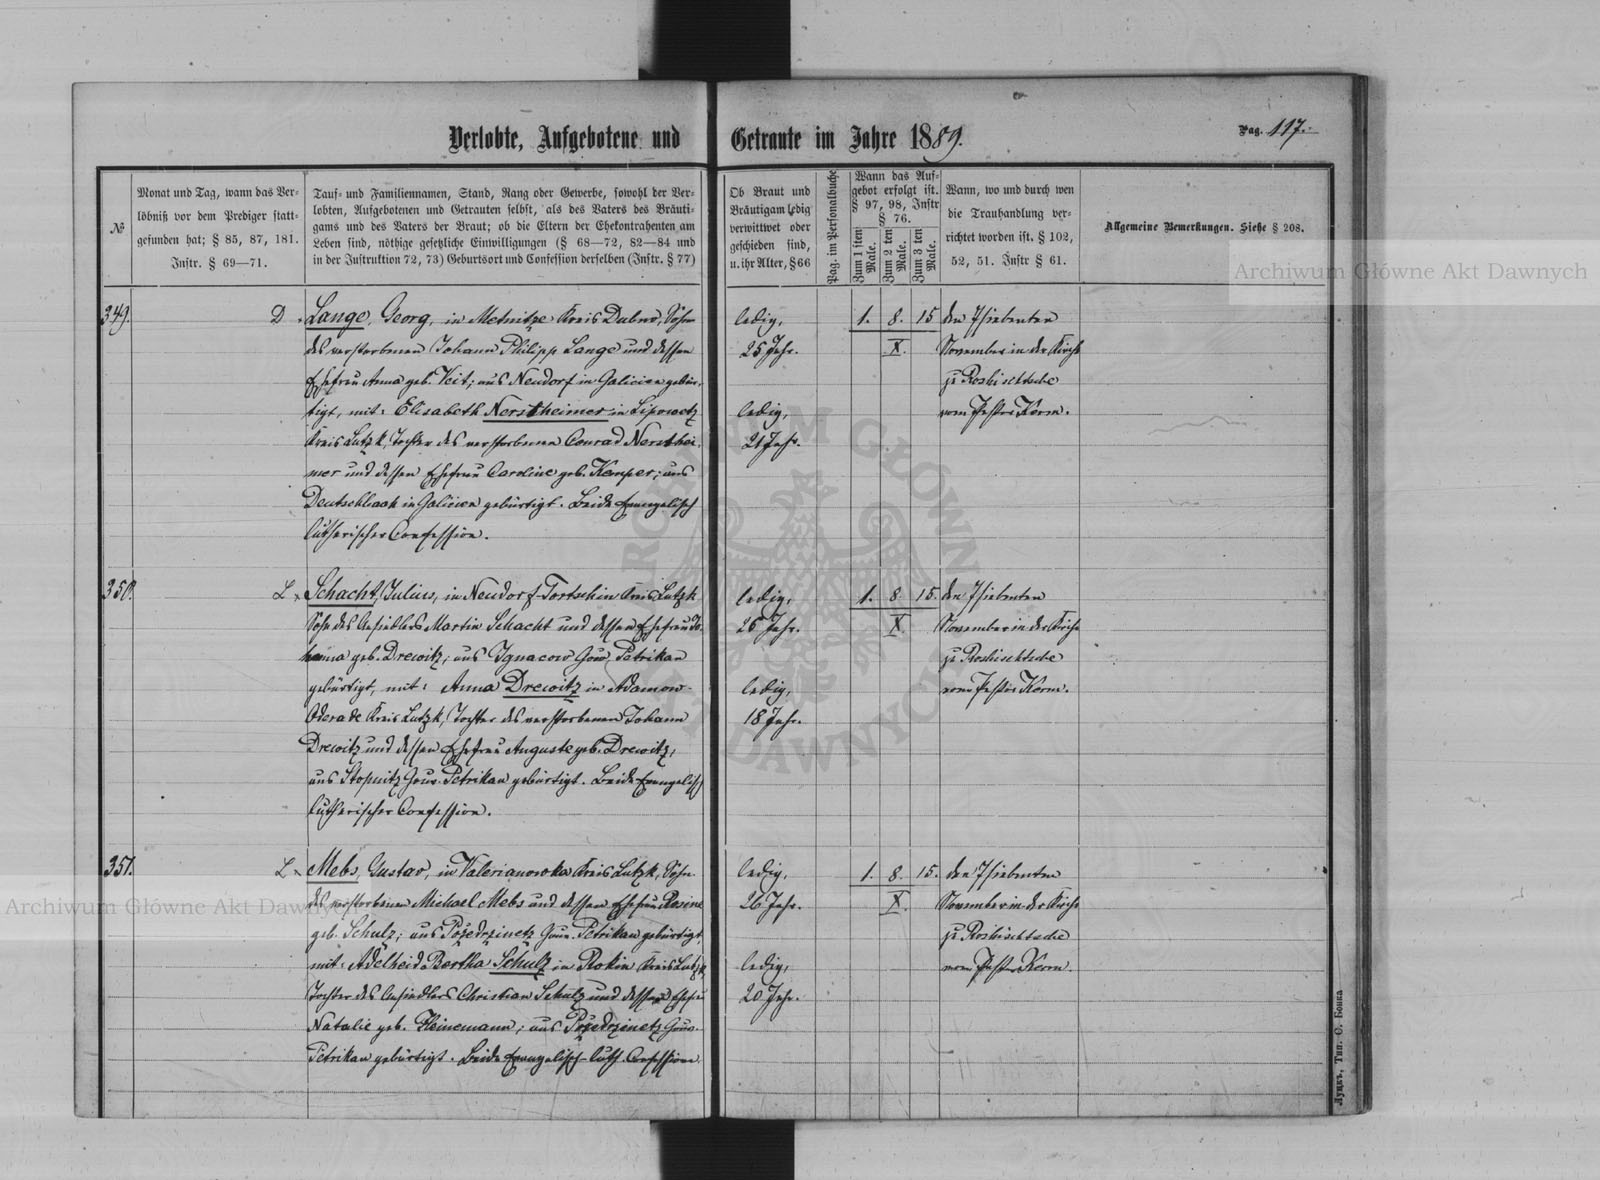 Verlobte, Aufgebotene und Getraute im Jahre 1889.
Pag. 117.
№
Monat und Tag, wann das Ver-
löbniß vor dem Prediger statt-
gefunden hat; § 85, 87, 181.
Instr. § 69—71.
Tauf- und Familiennamen, Stand, Rang oder Gewerbe, sowohl der Ver-
lobten, Aufgebotenen und Getrauten selbst, als des Vaters des Bräuti-
gams und des Vaters der Braut; ob die Eltern der Ehekontrahenten am
Leben sind, nöthige gesetzliche Einwilligungen (§ 68—72, 82—84 und
in der Instruktion 72, 73) Geburtsort und Confession derselben (Instr. § 77)
Ob Braut und
Bräutigam ledig
verwittwet oder
geschieden sind,
u. ihr Alter, § 66
Pag. im Personalbuche
Wann das Auf-
gebot erfolgt ist.
§ 97, 98, Instr
§ 76.
Zum 1 sten Male.
Zum 2 ten Male.
Zum 3 ten Male.
Wann, wo und durch wen
die Trauhandlung ver-
richtet worden ist. § 102,
52, 51. Instr § 61.
Allgemeine Bemerkungen. Siehe § 208.
349.
D.
Lange, Georg, in Metnitze Kreis Dubno, Sohn
des verstorbenen Johann Philipp Lange und dessen
Ehefrau Anna geb. Veit; aus Neudorf in Galicien gebür-
tigt, mit: Elisabeth Nerstheimer in Lipowetz
Kreis Lutzk, Tochter des verstorbenen Conrad Nersthei-
mer und dessen Ehefrau Caroline geb. Kemper; aus
Deutschbach in Galicien gebürtigt. Beide Evangelisch
lutherischer Confession.
ledig,
25 Jahr.
ledig,
21 Jahr.
1. 8. 15
X.
den 7 siebenten
November in der Kirche
zu Roshischtsche
vom Pastor Kerm.
350.
L.
Schacht, Julius, in Neudorf-Tortschin Kreis Lutzk
Sohn des Ansiedlers Martin Schacht und dessen Ehefrau Jo-
hanna geb. Drewitz; aus Ignacow Gouv. Petrikau
gebürtigt, mit: Anna Drewitz in Adamow-
Oderade Kreis Lutzk, Tochter des verstorbenen Johann
Drewitz und dessen Ehefrau Auguste geb. Drewitz;
aus Stopnitz Gouv. Petrikau gebürtigt. Beide Evangelisch
lutherischer Confession.
ledig,
25 Jahr.
ledig,
18 Jahr.
1. 8 15.
X.
den 7 siebenten
November in der Kirche
zu Roshischtsche
vom Pastor Kerm.
351.
L.
Mebs, Gustav, in Valerianowka Kreis Lutzk, Sohn
des verstorbenen Michael Mebs und dessen Ehefrau Rosine
geb. Schulz; aus Požedrzinetz Gouv. Petrikau gebürtigt,
mit: Adelheid Bertha Schulz in Rokin Kreis Lutzk,
Tochter des Ansiedlers Christian Schulz und dessen Ehefrau
Natalie geb. Heinemann; aus Požedrzinetz Gouv.
Petrikau gebürtigt. Beide Evangelisch-luth. Confession
ledig,
26 Jahr.
ledig,
20 Jahr.
1. 8. 15.
X.
den 7 siebenten
November in der Kirche
zu Roshischtsche
vom Pastor Kerm.
Луцкъ, Тип. С. Бонка
Archiwum Główne Akt Dawnych
Archiwum Główne Akt Dawnych
ARCHIWUM GŁÓWNE AKT DAWNYCH